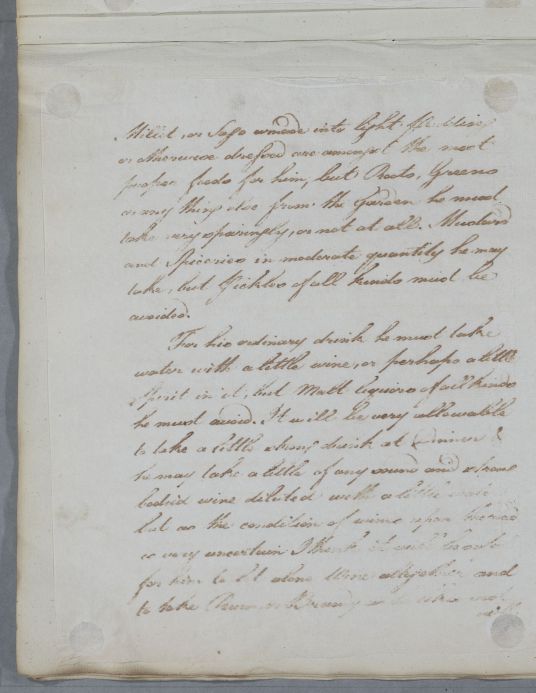 Millet, or Sago made into light Puddings
or otherwise dressed are amongst the most
proper foods for him, but Roots, Greens
or any thing else from the Garden he must
take very sparingly, or not at all. Mustard
and Spiceries in moderate quantity he may
take, but Pickles of all kinds must be
avoided.
For his ordinary drink he must take
water with a little wine, or perhaps a little
Spirit in it, but Malt liquors of all kinds
he must avoid. It will be very allowable
to take a little strong drink at Dinner &
he may take a little of any sound and strong
bodied wine diluted with a little water
but as the condition of wines upon the road
is very uncertain I think it will be safe
for him to let alone Wine altogether and
to take Rum or Brandy